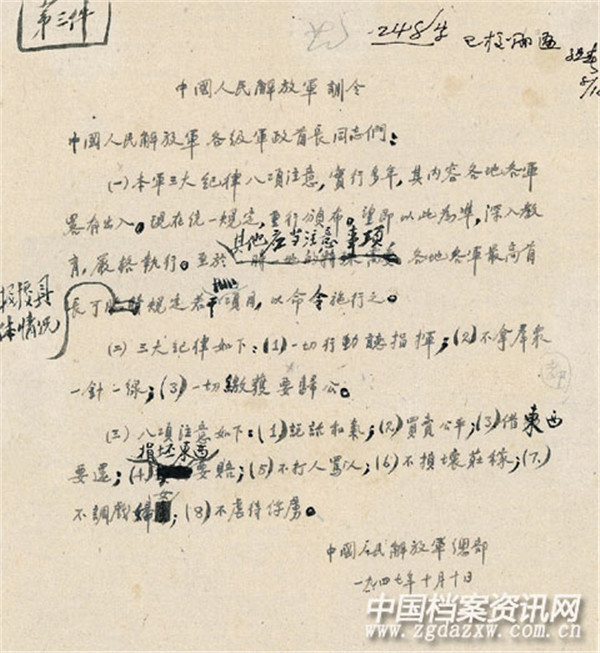 第三件
248字
已校
中國人民解放軍訓令
中國人民解放軍各級軍政首長同志們：
(一)本軍三大紀律八項注意，實行多年，其內容各地各軍
畧有出入。現在統一規定，重行頒布。望即以此為準，深入教
其他应当注意事項
育，嚴格執行。至於 各地各軍最高首
按照具
体情况
長可 規定若干項目，以命令施行之。
(二)三大紀律如下：(1)一切行動聽指揮；(2)不拿羣衆
一針一線；(3)一切繳獲要歸公。
(三)八項注意如下：(1)說話和氣；(2)買賣公平；(3)借東西
損坏東西
要還；(4)要賠；(5)不打人罵人；(6)不損壞莊稼；(7)
女
不調戲婦；(8)不虐待俘虜。
中國人民解放軍總部
一九四七年十月十日
中国档案资讯网
www.zgdazxw.com.cn